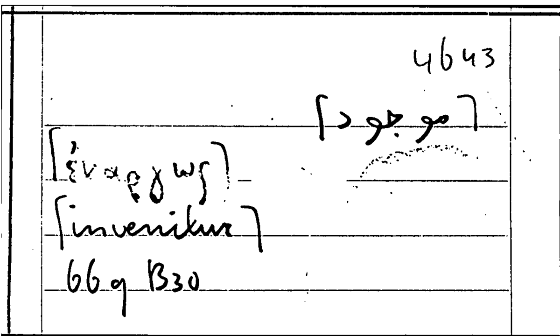 4643
[موجود]
[ἐναργῶς]
[invenitur]
66 q B30